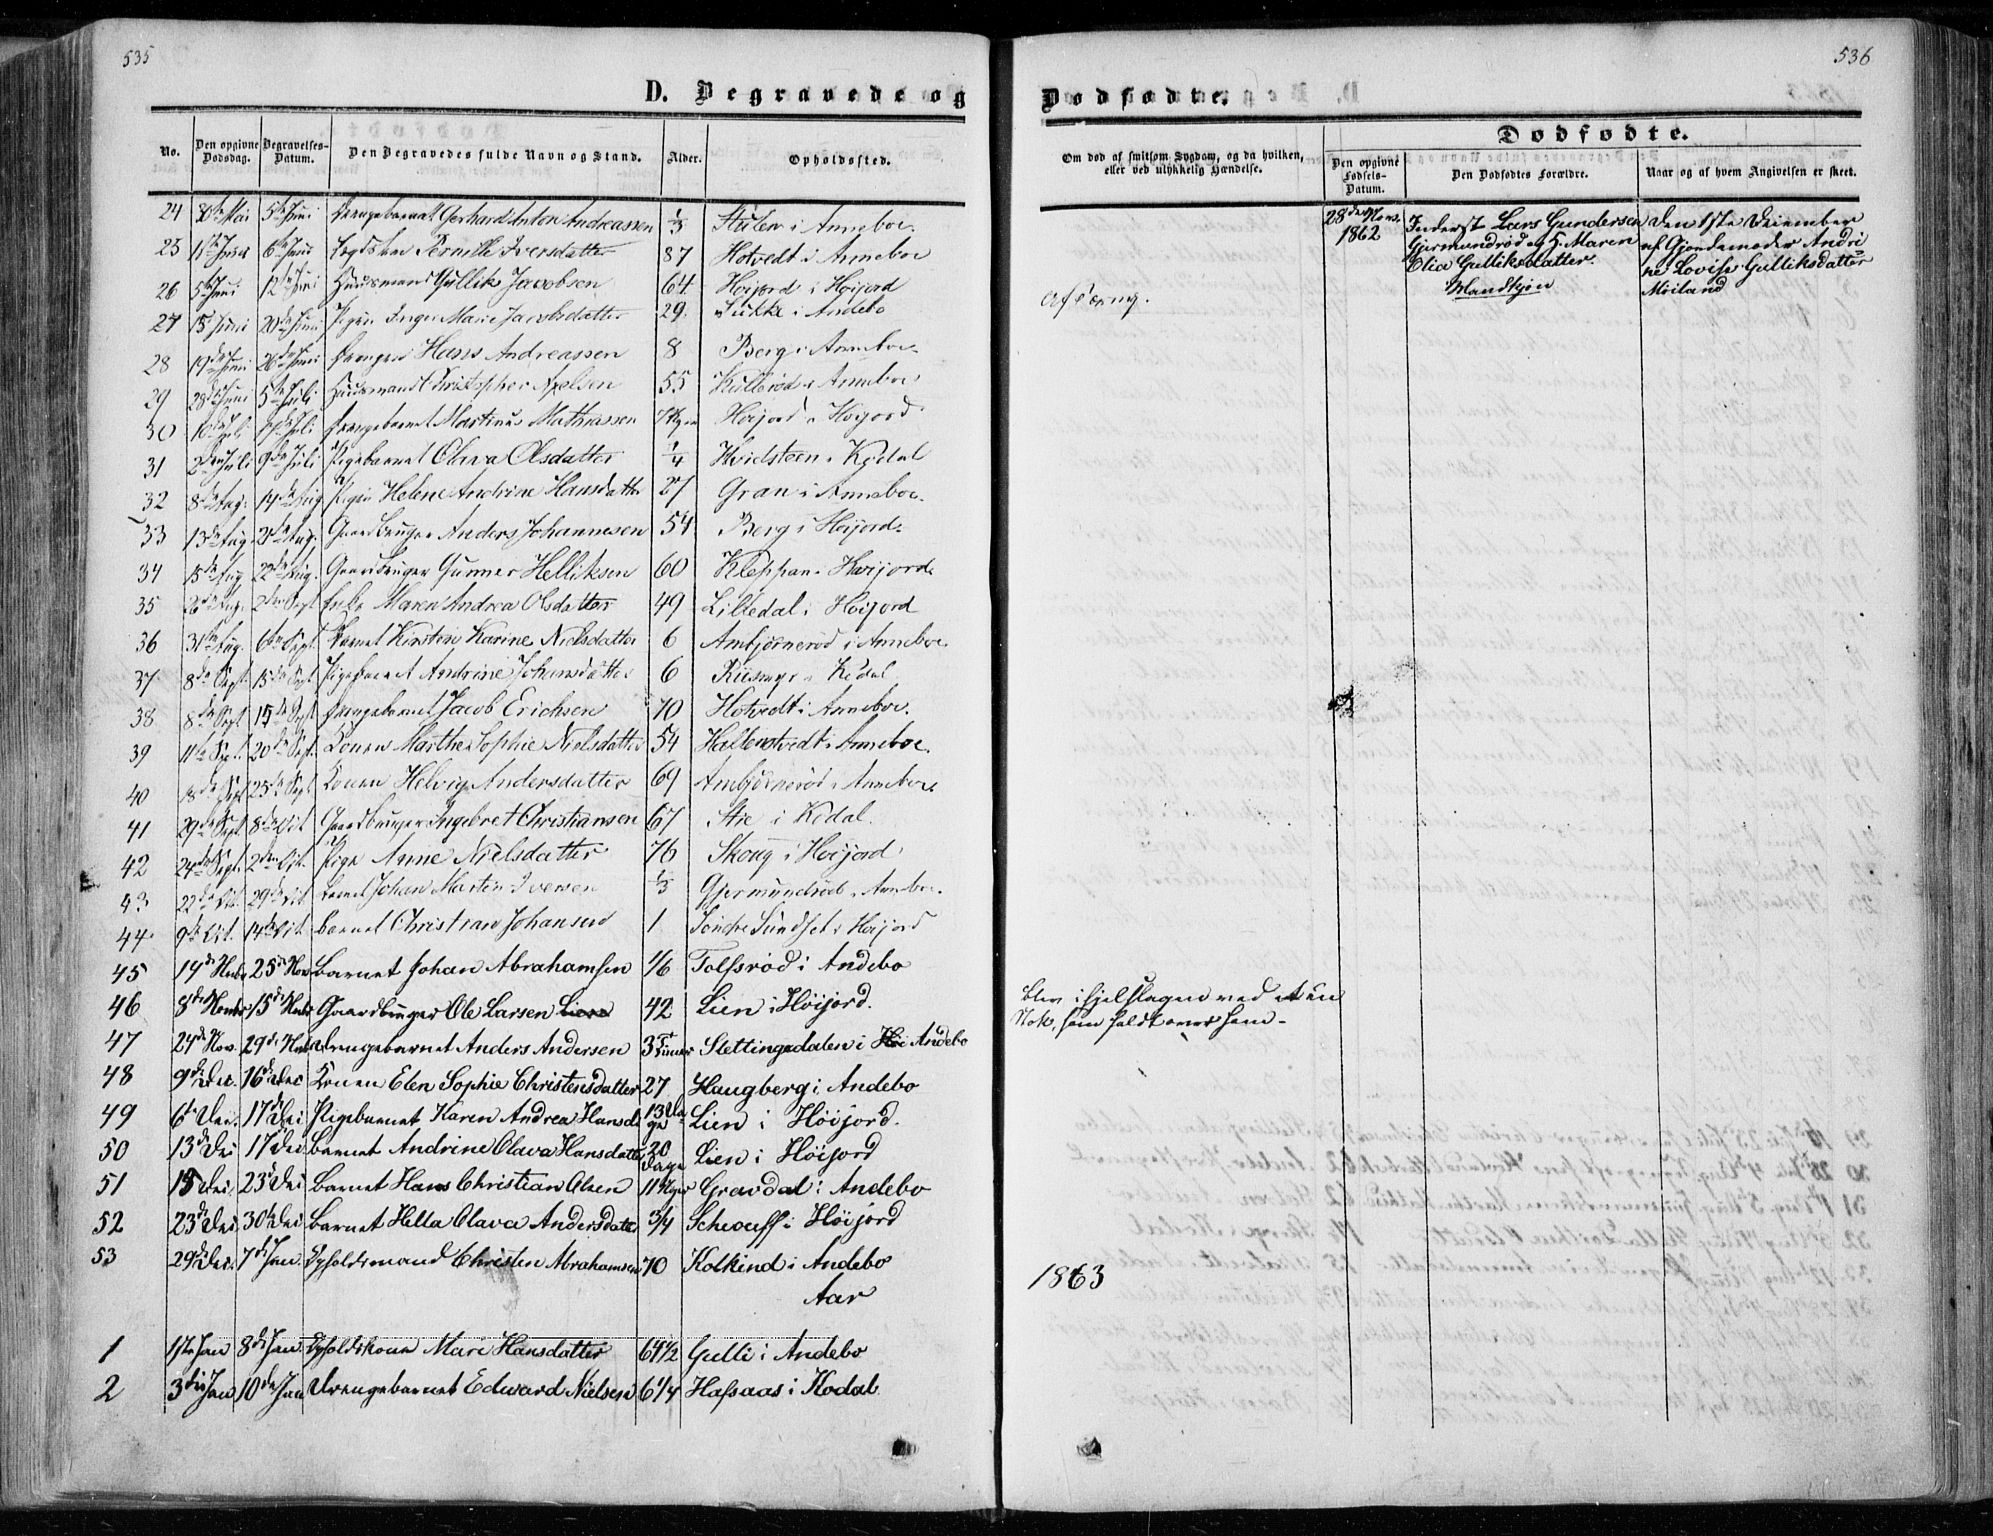 535
D. Begravede og
No. Den opgivne Dødsdag. Begravelses-Datum. Den Begravedes fulde Navn og Stand. Alder. Opholdssted.
24 30te Mai 5te Juni Drengebarnet Gerhard Anton Andreassen 1/3 i Anneboe
25 6te Juni Pernille Iversdatter 87 Hotvedt i Anneboe
26 5te Juni 12te Juni Huusmand Gullik Jacobsen 64 Høijord i Høijord
27 15 Juni 20de Juni Pigen Inger Marie Jacobsdatter 29. i Andebo
28 19de Juni 26de Juni Drengen Hans Andreassen 8 Berg i Anneboe
29 28de Juni 5te Juli Huusmand Christopher 55 i Anneboe
30 Juli Juli Drengebarnet Martinus Mathiassen 7 Uger Høijord i Høijord
31 2den Juli 9de Juli Pigebarnet Olava Olsdatter 1/4 Hvidsteen i Kodal
32 8de Aug. 14de Aug Pigen Helene Andrine Hansdatter 27 Gran i Anneboe.
33 13de Aug. Aug. Gaardbruger Anders Johannesen 54 Berg i Høijord.
34 15de Aug 22de Aug. Gaardbruger Gunner Helliksen 60 Kleppan i Høijord.
35 26de Aug. 2den Sept Enke Maren Andrea Olsdatter 49 Lilledal i Høijord
36 31te Aug. 6te Sept. Barnet Kirstine Karine Nielsdatter 6 Ambjørnerød i Anneboe.
37 8de Sept. 15de Sept Pigebarnet Andrine Johansdatter 6 Riismyr i Kodal
38 8de Sept 15de Sept Drengebarnet Jacob Erichsen 70 Hotvedt i Anneboe.
39 11te Sept. 20de Sept. Konen Marthe Sophie Nielsdatter 54 Hallenstvedt i Anneboe.
40 18de Sept 25de Sept Konen Helvig Andersdatter 69 Ambjørnerød i Anneboe.
41 29de Sept. 8de Oct Gaardbruger Ingebret Christiansen 67 i Kodal.
42 24de Sept. 2den Oct. Pige Anne Nielsdatter 76 Skoug i Høijord.
43 22de Oct. 29de Oct Barnet Johan Martin Iversen 1/3 Gjermundrød i Anneboe.
44 9de Oct. 14de Oct. Barnet Christian Johansen 1 Søndre Sundset i Høijord
45 14de Novbr 25de Nov Barnet Johan Abrahamsen 1/6 Tolfsrød i Andebo
46 8de Novbr 15de Novbr Gaardbruger Ole Larsen Lien 42 Lien i Høijord.
47 24de Nov. 29de Novbr Drengebarnet Anders Andersen 3 Timer Slettingedalen i Høi Andebo
48 9de Dec. 16de Dec Konen Elen Sophie Christensdatter 27 Haugberg i Andebo
49 6te Dec. 17de Dec Pigebarnet Karen Andrea Hansd 13 Dage Lien i Høijord.
50 13de Dec 17 Dec Barnet Andrine Olava Hansdatter 20 Dage Lien i Høijord
51 15 Dec. 23de Dec Barnet Hans Christian Olsen 11 Uger Gravdal i Andebo
52 23de Dec 30te Dec Barnet Hella Olava Andersdatter 3/4 Schouff i Høijord
53 29de Dec. 7de Jan. Opholdsmand Christen Abrahamsen 70 Kolkind i Andebo
Aar
1 1ste Jan 8de Jan. Opholdskone Mari Hansdatter 64 1/2 Gulli i Andebo
2 3die Jan 10de Jan Drengebarnet Edward Nielsen 6 1/4 Hafsaas i Kodal.
536
Dødfødte.
Om død af smitsom Sygdom, og da hvilken, eller ved ulykkelig Hændelse.
Dødfødte.
Den opgivne Fødsels-Datum. Den Dødfødtes Forældre. Naar og af hvem Angivelsen er skeet.
28de Nov. 1862
Inderst Lars Gundersen
Gjermundrød og H. Maren
Elia Gulliksdatter.
Mandkjøn
Den 1ste December
af Gjordemoder Andri
ne Lovise Gulliksdatter
Møiland
Af Tæring.
Blev ihjelslagen ved at en
Stok, som faldt over ham.
1863